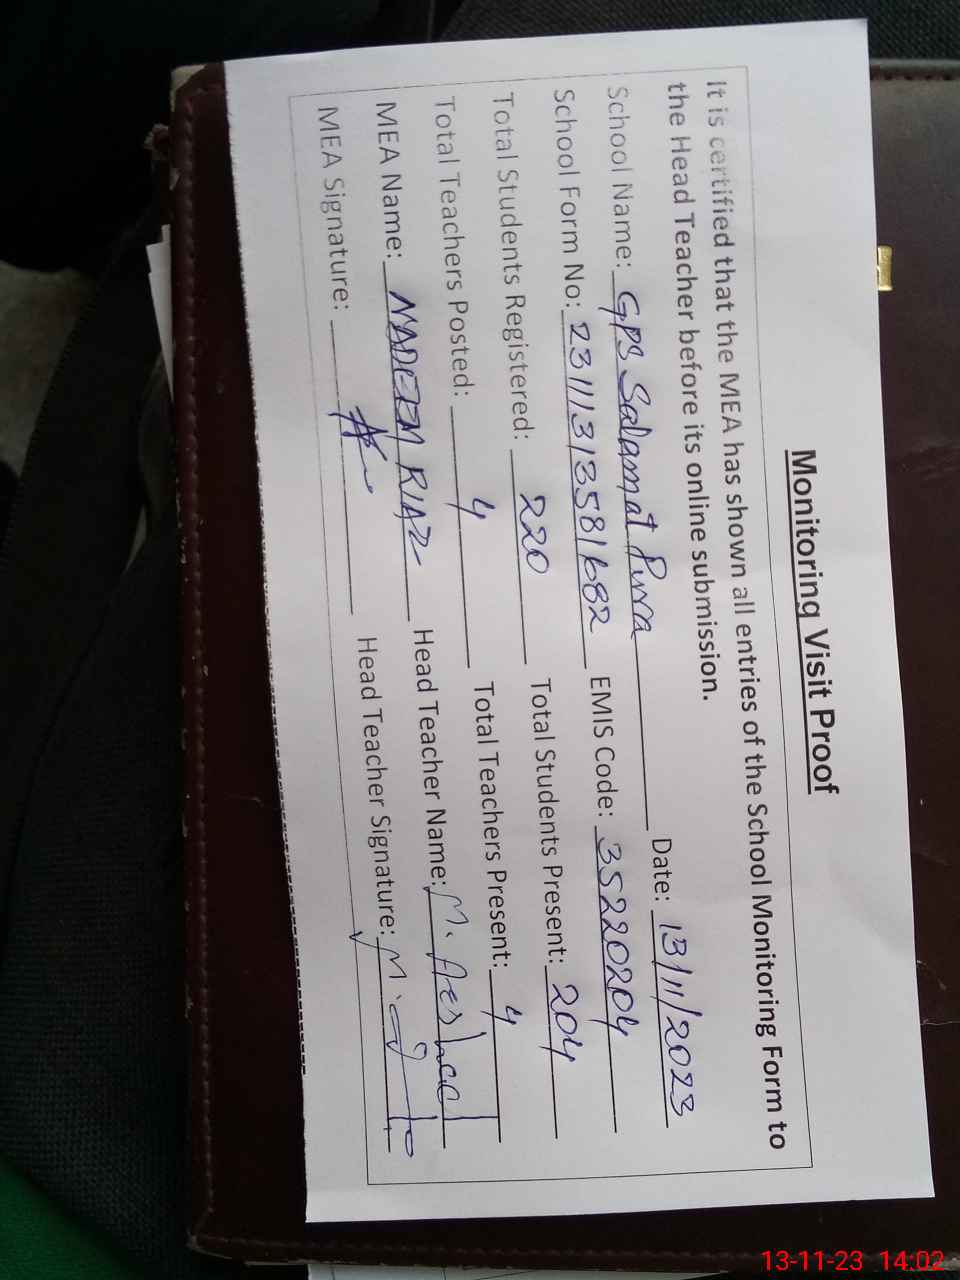 Monitoring Visit Proof
It is certified that the MEA has shown all entries of the School Monitoring Form to
the Head Teacher before its online submission.
School Name: GPS Salamat Pura Date: 13/11/2023
School Form No: 23111313581682 EMIS Code: 35220204
Total Students Registered: 220 Total Students Present: 204
Total Teachers Posted: 4 Total Teachers Present: 4
MEA Name: NADEEM RIAZ Head Teacher Name: M. Arshad
MEA Signature: Head Teacher Signature:
13-11-23 14:02